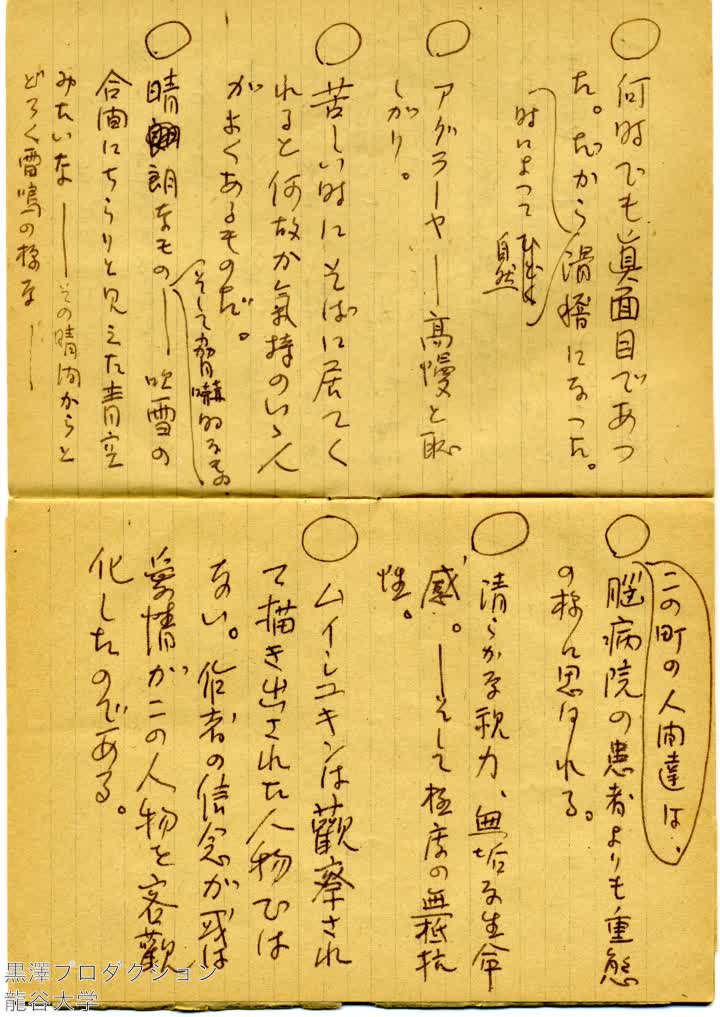 ○ 何時でも眞面目であつ
た。だから滑稽になつた。
時によつて
自然
○ アグラーヤ――高慢と恥
しがり。
○ 苦しい時にそばに居てく
れると何故か氣持のいゝ人
がよくあるものだ。
そして
的なもの。
○ 晴朗なもの――吹雪の
合間にちらりと見えた青空
みたいな――その晴間からと
どろく雷鳴の様な――
この町の人間達は、
○ 脳病院の患者よりも重態
の様に思はれる。
○ 清らかな視力、無垢な生命
感。――そして極度の無抵抗
性。
○ ムイシユキンは觀察され
て描き出された人物では
ない。作者の信念が或は
愛情がこの人物を客觀
化したのである。
黒澤プロダクション
龍谷大学